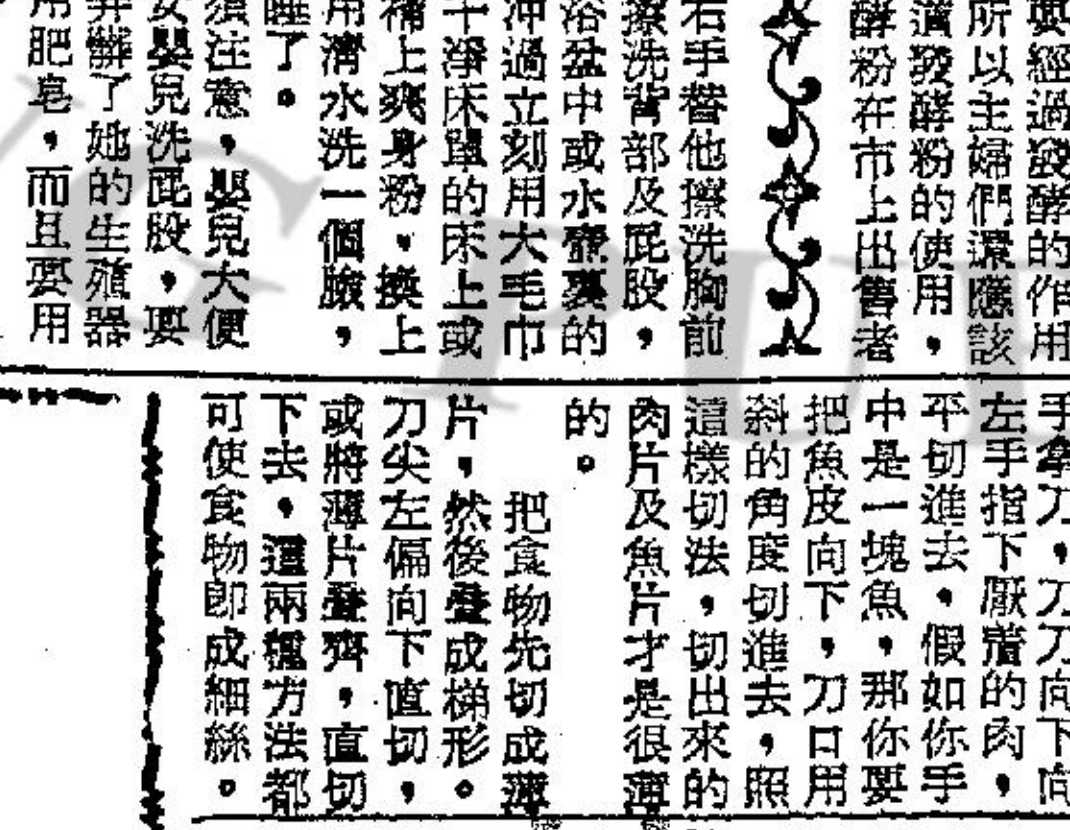 要經過發酵的作用
所以主婦們還應該
道發酵粉的使用，
酵粉在市上出售者
右手替他擦洗胸前
擦洗背部及屁股，
浴盆中或水壺裏的
沖過立刻用大毛巾
干淨床單的床上或
補上爽身粉，換上
用清水洗一個臉，
睡了。
須注意，嬰兒大便
女嬰兒洗屁股，要
弄髒了她的生殖器
用肥皂，而且要用
手拿刀，刀刀向下向
左手指下厭着的肉，
平切進去，假如你手
中是一塊魚，那你要
把魚皮向下，刀口用
斜的角度切進去，照
這樣切法，切出來的
肉片及魚片才是很薄
的。
把食物先切成薄
片，然後疊成梯形。
刀尖左偏向下直切，
或將薄片疊齊，直切
下去，這兩種方法都
可使食物卽成細絲。